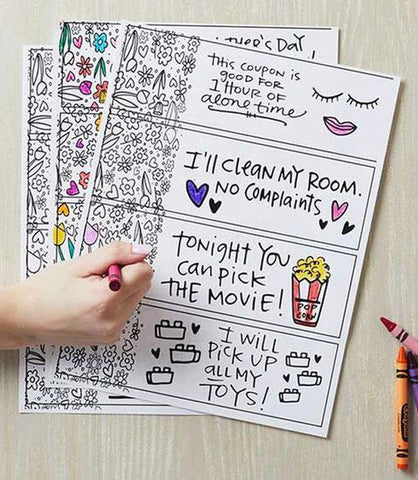 DAY,
This coupon is
good for
1 hour of
alone time
I'll clean my room.
no complaints
tonight you
can pick
the movie!
POP
CORN
I will
pick up
all my
toys!